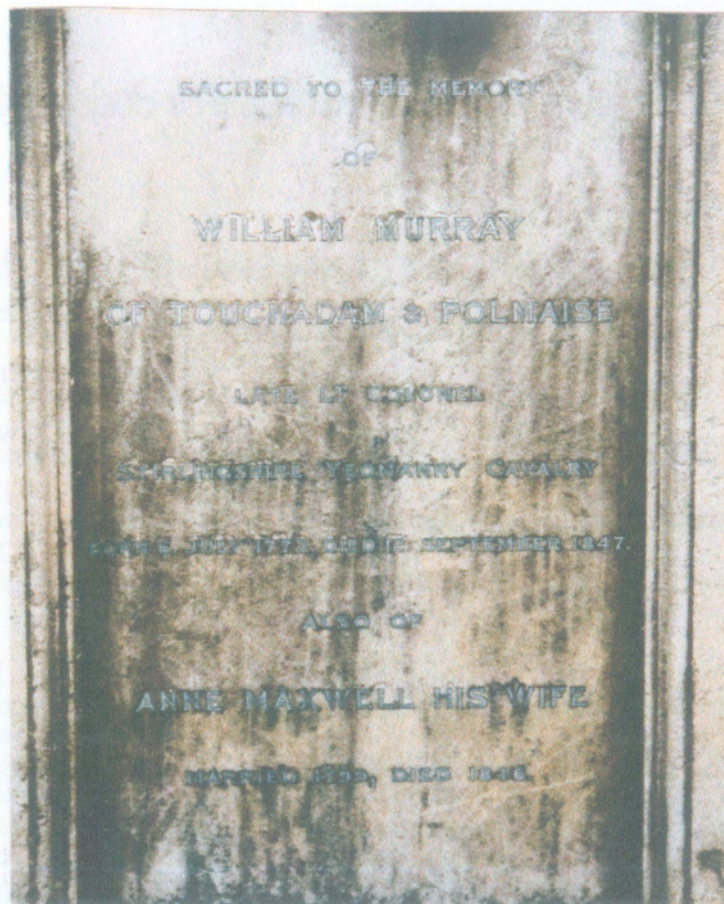 SACRED TO THE MEMORY
OF
WILLIAM MURRAY
OF TOUCHADAM & POLMAISE
LATE LT COLONEL
STIRLINGSHIRE YEOMANRY CAVALRY
BORN 6 JULY 1773, DIED SEPTEMBER 1847.
ALSO OF
ANNE MAXWELL HIS WIFE
MARRIED 1799, DIED 1846.